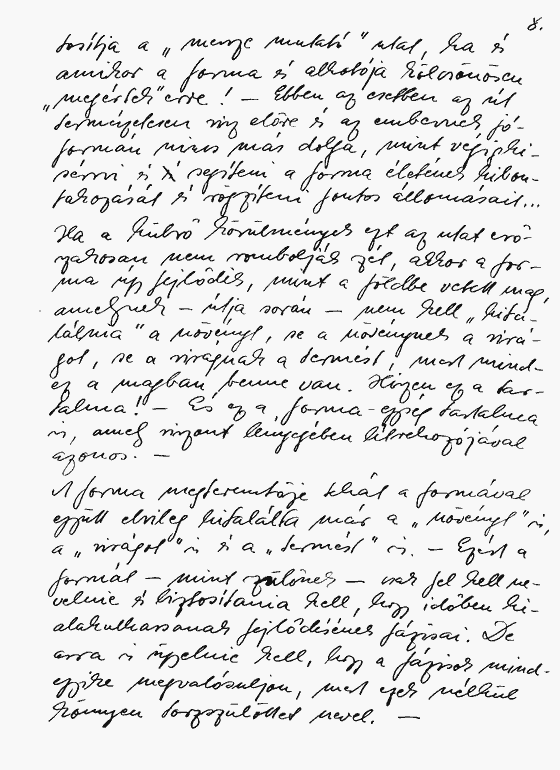 8.
tosítja a „messze mutató" utat, ha és
amikor a forma és alkotója kölcsönösen
„megértek" erre! — Ebben az esetben az út
természetesen visz előre és az embernek jó-
formán nincs más dolga, mint végigki-
sérni és segíteni a forma életének kibon-
takozását és rögzíteni fontos állomásait...
Ha a külső körülmények ezt az utat erő-
szakosan nem rombolják szét, akkor a for-
ma úgy fejlődik, mint a földbe vetett mag,
amelynek — útja során — nem kell „kita-
lálnia" a növényt, se a növénynek a virá-
got, se a virágnak a termést, mert mind-
ez a magban benne van. Hiszen ez a tar-
talma! — És ez a forma-egység tartalma
is, amely viszont lényegében létrehozójával
azonos. —
A forma megteremtője tehát a formával
együtt elvileg kitalálta már a „növényt" is,
a „virágot" is és a „termést" is. — Ezért a
formát — mint szülőnek — csak fel kell ne-
velnie és biztosítania kell, hogy időben ki-
alakulhassanak fejlődésének fázisai. De
arra is ügyelnie kell, hogy a fázisok mind-
egyike megvalósuljon, mert ezek nélkül
könnyen torzszülöttet nevel. —